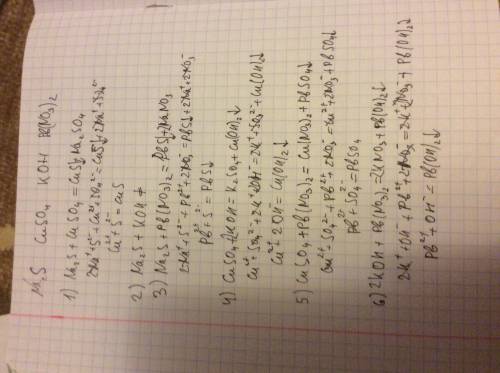 Na₂S CuSO₄ KOH Pb(NO₃)₂
1) Na₂S + CuSO₄ = CuS↓ + Na₂SO₄
2Na⁺ + S²⁻ + Cu²⁺ + SO₄²⁻ = CuS↓ + 2Na⁺ + SO₄²⁻
Cu²⁺ + S²⁻ = CuS
2) Na₂S + KOH ≠
3) Na₂S + Pb(NO₃)₂ = PbS↓ + 2NaNO₃
2Na⁺ + S²⁻ + Pb²⁺ + 2NO₃⁻ = PbS↓ + 2Na⁺ + 2NO₃⁻
Pb²⁺ + S²⁻ = PbS↓
4) CuSO₄ + 2KOH = K₂SO₄ + Cu(OH)₂↓
Cu²⁺ + SO₄²⁻ + 2K⁺ + 2OH⁻ = 2K⁺ + SO₄²⁻ + Cu(OH)₂↓
Cu²⁺ 2OH⁻ = Cu(OH)₂↓
5) CuSO₄ + Pb(NO₃)₂ = Cu(NO₃)₂ + PbSO₄↓
Cu²⁺ + SO₄²⁻ + Pb²⁺ + 2NO₃⁻ = Cu²⁺ + 2NO₃⁻ + PbSO₄↓
Pb²⁺ + SO₄²⁻ = PbSO₄
6) 2KOH + Pb(NO₃)₂ = 2KNO₃ + Pb(OH)₂↓
2K⁺ + OH⁻ + Pb²⁺ + 2NO₃⁻ = 2K⁺ + 2NO₃⁻ + Pb(OH)₂↓
Pb²⁺ + OH⁻ = Pb(OH)₂↓